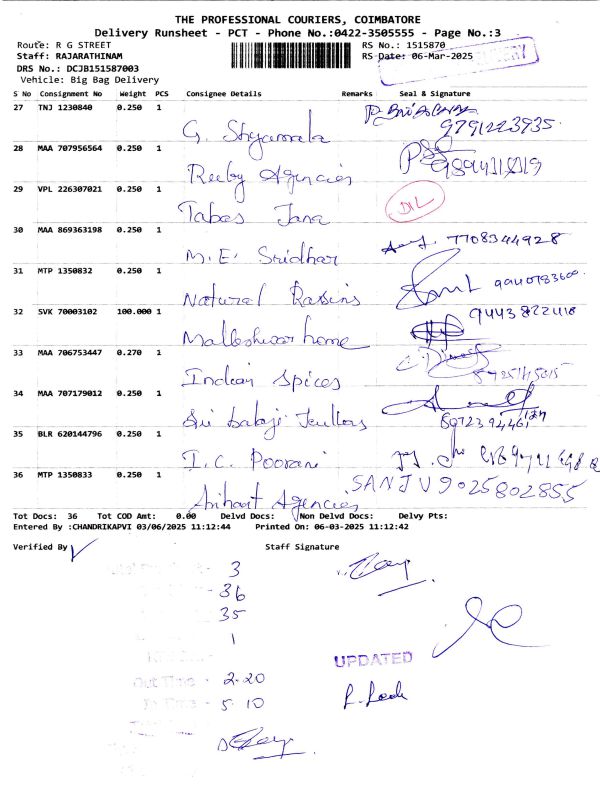 THE PROFESSIONAL COURIERS, COIMBATORE
Delivery Runsheet - PCT - Phone No.:0422-3505555 - Page No.:3
Route: R G STREET RS No.: 1515870
Staff: RAJARATHINAM RS Date: 06-Mar-2025
DRS No.: DCJB151587003
Vehicle: Big Bag Delivery
S No Consignment No Weight PCS Consignee Details Remarks Seal & Signature
27 TNJ 1230840 0.250 1 G. Shyamala 9791223935
28 MAA 707956564 0.250 1 Ruby Agencies
29 VPL 226307021 0.250 1 Tabas Jana DIL
30 MAA 869363198 0.250 1 M.E. Sridhar 7708344928
31 MTP 1350832 0.250 1 Natural Raisins
32 SVK 70003102 100.000 1 Malleshwar home 9443822418
33 MAA 706753447 0.270 1 Indian Spices
34 MAA 707179012 0.250 1 Sri balaji Jewllers
35 BLR 620144796 0.250 1 I.C. Poorani
36 MTP 1350833 0.250 1 Arihant Agencies SANJU 9025802855
Tot Docs: 36 Tot COD Amt: 0.00 Delvd Docs: Non Delvd Docs: Delvy Pts:
Entered By :CHANDRIKAPVI 03/06/2025 11:12:44 Printed On: 06-03-2025 11:12:42
Verified By Staff Signature
3
36
35
1
UPDATED
Out Time - 2.20
In Time - 5.10